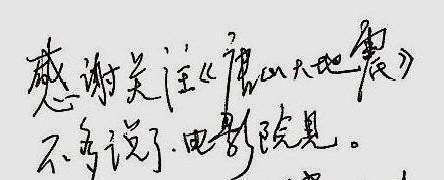 感谢关注《唐山大地震》
不多说了.电影院见。